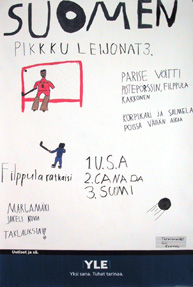 SUOMEN
PIKKKU LEIJONAT 3.
PARISE VOITTI
POTEPORSSIN, FILPPULA
KAKKONEN
KORPIKARI JA SALMELA
POISSA VÄHÄN AIKAA
Filppula ratkaisi
1 U.S.A
2. CANADA
3. SUMI
MARJAMÄKI
JAKELI KOVIA
TAKLAUKSIA!!
Uutiset ja sä.
YLE
Yksi sana. Tuhat tarinaa.